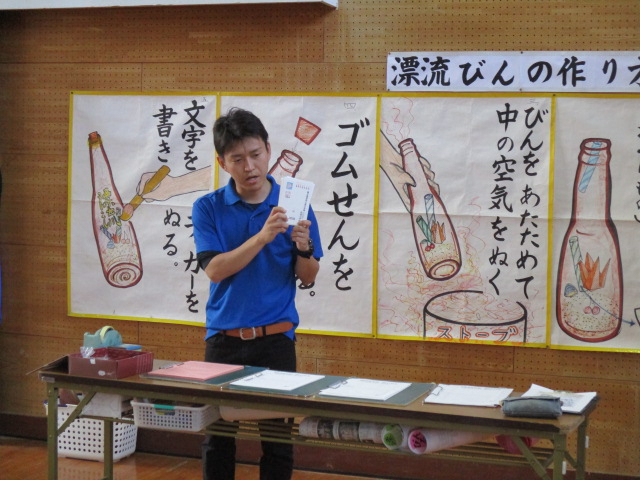 漂流びんの作り方
文字を
書き
ニスかを
ぬる。
ゴムせんを
る。
びんをあたためて
中の空気をぬく
ストーブ